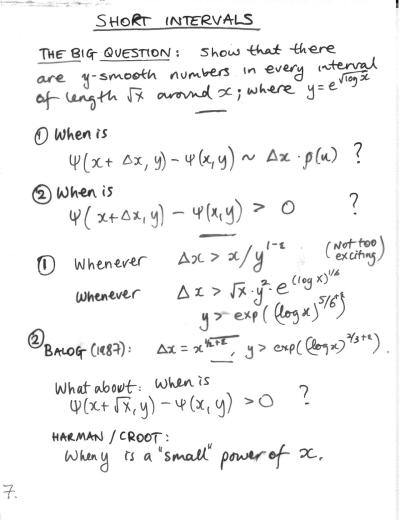 SHORT INTERVALS
THE BIG QUESTION: Show that there
are y-smooth numbers in every interval
of length √x around x; where y = e^√log x
① When is
Ψ(x + Δx, y) - Ψ(x, y) ~ Δx · ρ(u) ?
② When is
Ψ(x + Δx, y) - Ψ(x, y) > 0 ?
① Whenever Δx > x/y^{1-ε} (Not too exciting)
Whenever Δx > √x · y² · e^{(log x)^{1/6}}
y > exp((log x)^{5/6+ε})
② BALOG (1987): Δx = x^{1/2+ε}, y > exp((log x)^{2/3+ε}).
What about: When is
Ψ(x + √x, y) - Ψ(x, y) > 0 ?
HARMAN / CROOT:
When y is a "small" power of x.
7.